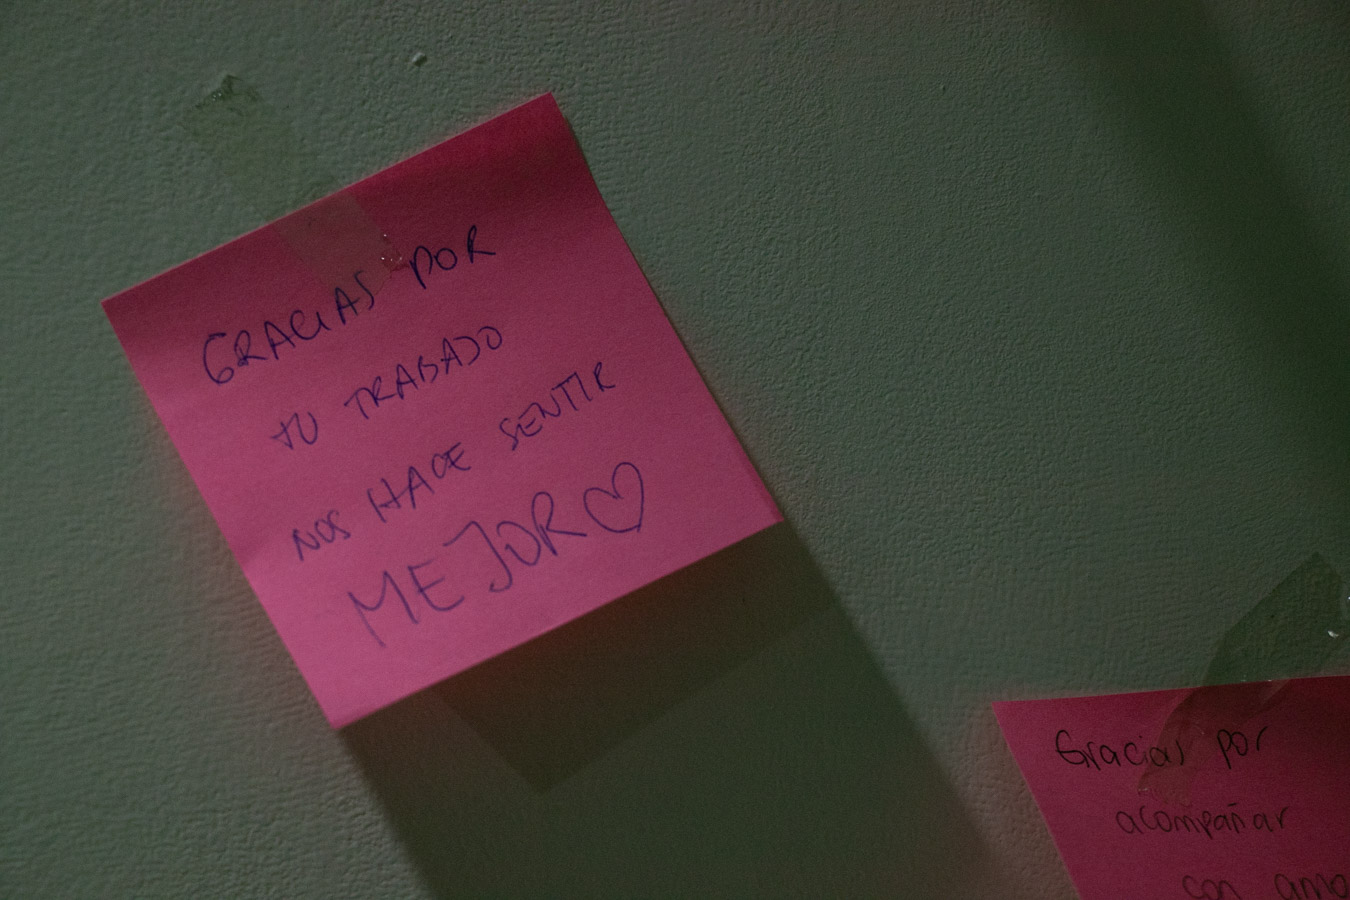 GRACIAS POR
TU TRABAJO
NOS HACE SENTIR
MEJOR
Gracias por
acompañar
con